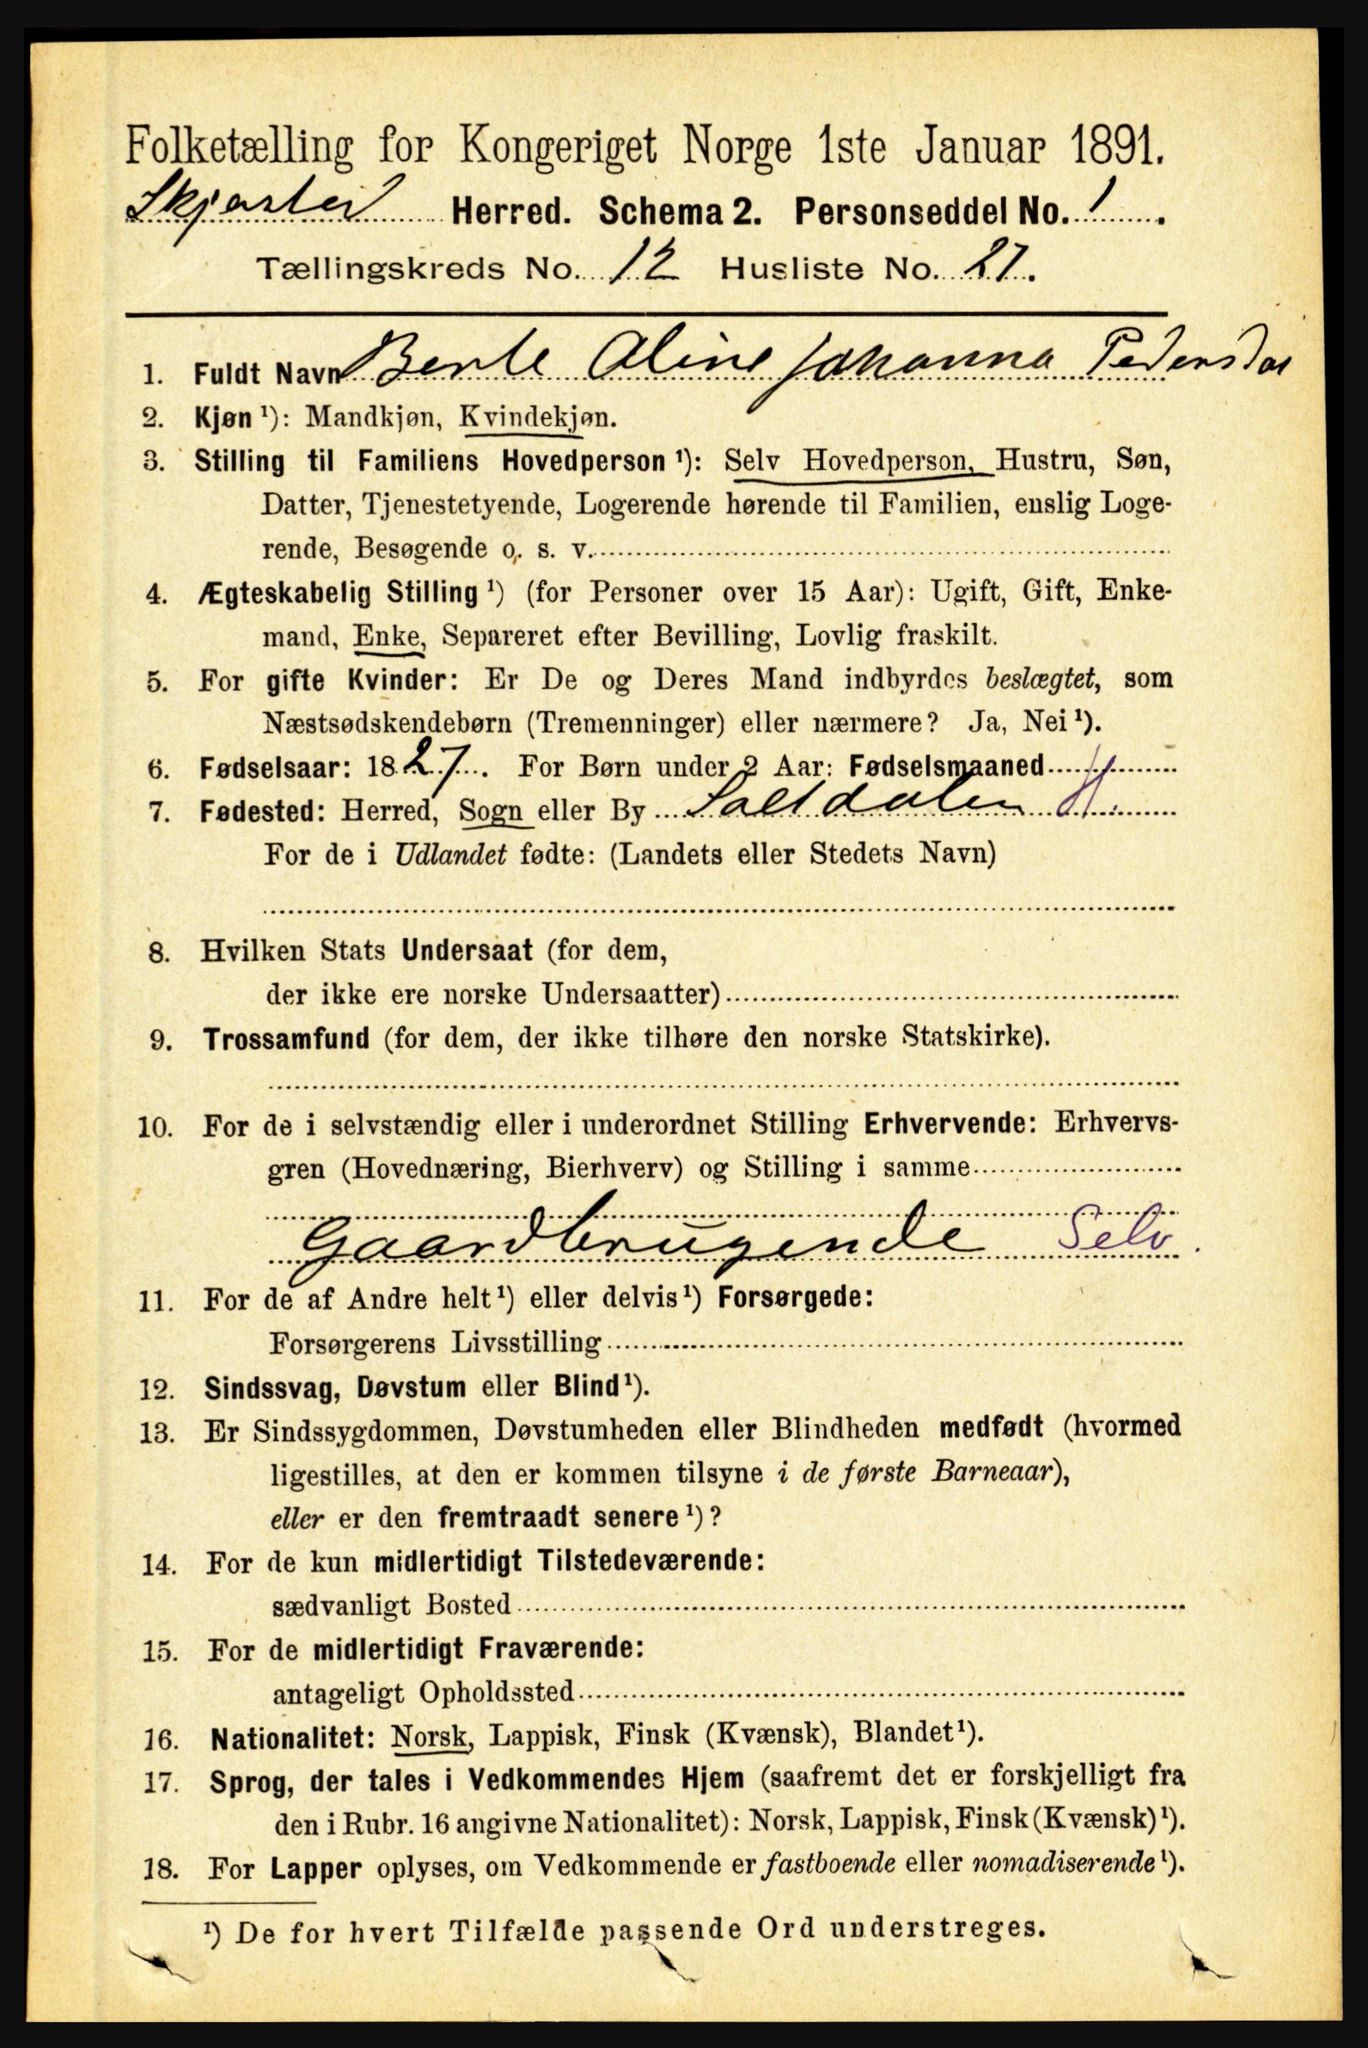 Folketælling for Kongeriget Norge 1ste Januar 1891.
Skjerstad Herred. Schema 2. Personseddel No. 1.
Tællingskreds No. 12 Husliste No. 27.
1. Fuldt Navn Berle Aline Johanna Pedersdat
2. Kjøn ¹): Mandkjøn, Kvindekjøn.
3. Stilling til Familiens Hovedperson ¹): Selv Hovedperson, Hustru, Søn,
Datter, Tjenestetyende, Logerende hørende til Familien, enslig Loge-
rende, Besøgende o. s. v.
4. Ægteskabelig Stilling ¹) (for Personer over 15 Aar): Ugift, Gift, Enke-
mand, Enke, Separeret efter Bevilling, Lovlig fraskilt.
5. For gifte Kvinder: Er De og Deres Mand indbyrdes beslægtet, som
Næstsødskendebørn (Tremenninger) eller nærmere? Ja, Nei ¹).
6. Fødselsaar: 1827. For Børn under 2 Aar: Fødselsmaaned
7. Fødested: Herred, Sogn eller By Saltdalen H.
For de i Udlandet fødte: (Landets eller Stedets Navn)
8. Hvilken Stats Undersaat (for dem,
der ikke ere norske Undersaatter)
9. Trossamfund (for dem, der ikke tilhøre den norske Statskirke).
10. For de i selvstændig eller i underordnet Stilling Erhvervende: Erhvervs-
gren (Hovednæring, Bierhverv) og Stilling i samme
Gaardbrugende Selv.
11. For de af Andre helt ¹) eller delvis ¹) Forsørgede:
Forsørgerens Livsstilling
12. Sindssvag, Døvstum eller Blind ¹).
13. Er Sindssygdommen, Døvstumheden eller Blindheden medfødt (hvormed
ligestilles, at den er kommen tilsyne i de første Barneaar),
eller er den fremtraadt senere ¹)?
14. For de kun midlertidigt Tilstedeværende:
sædvanligt Bosted
15. For de midlertidigt Fraværende:
antageligt Opholdssted
16. Nationalitet: Norsk, Lappisk, Finsk (Kvænsk), Blandet ¹).
17. Sprog, der tales i Vedkommendes Hjem (saafremt det er forskjelligt fra
den i Rubr. 16 angivne Nationalitet): Norsk, Lappisk, Finsk (Kvænsk) ¹).
18. For Lapper oplyses, om Vedkommende er fastboende eller nomadiserende ¹).
¹) De for hvert Tilfælde passende Ord understreges.